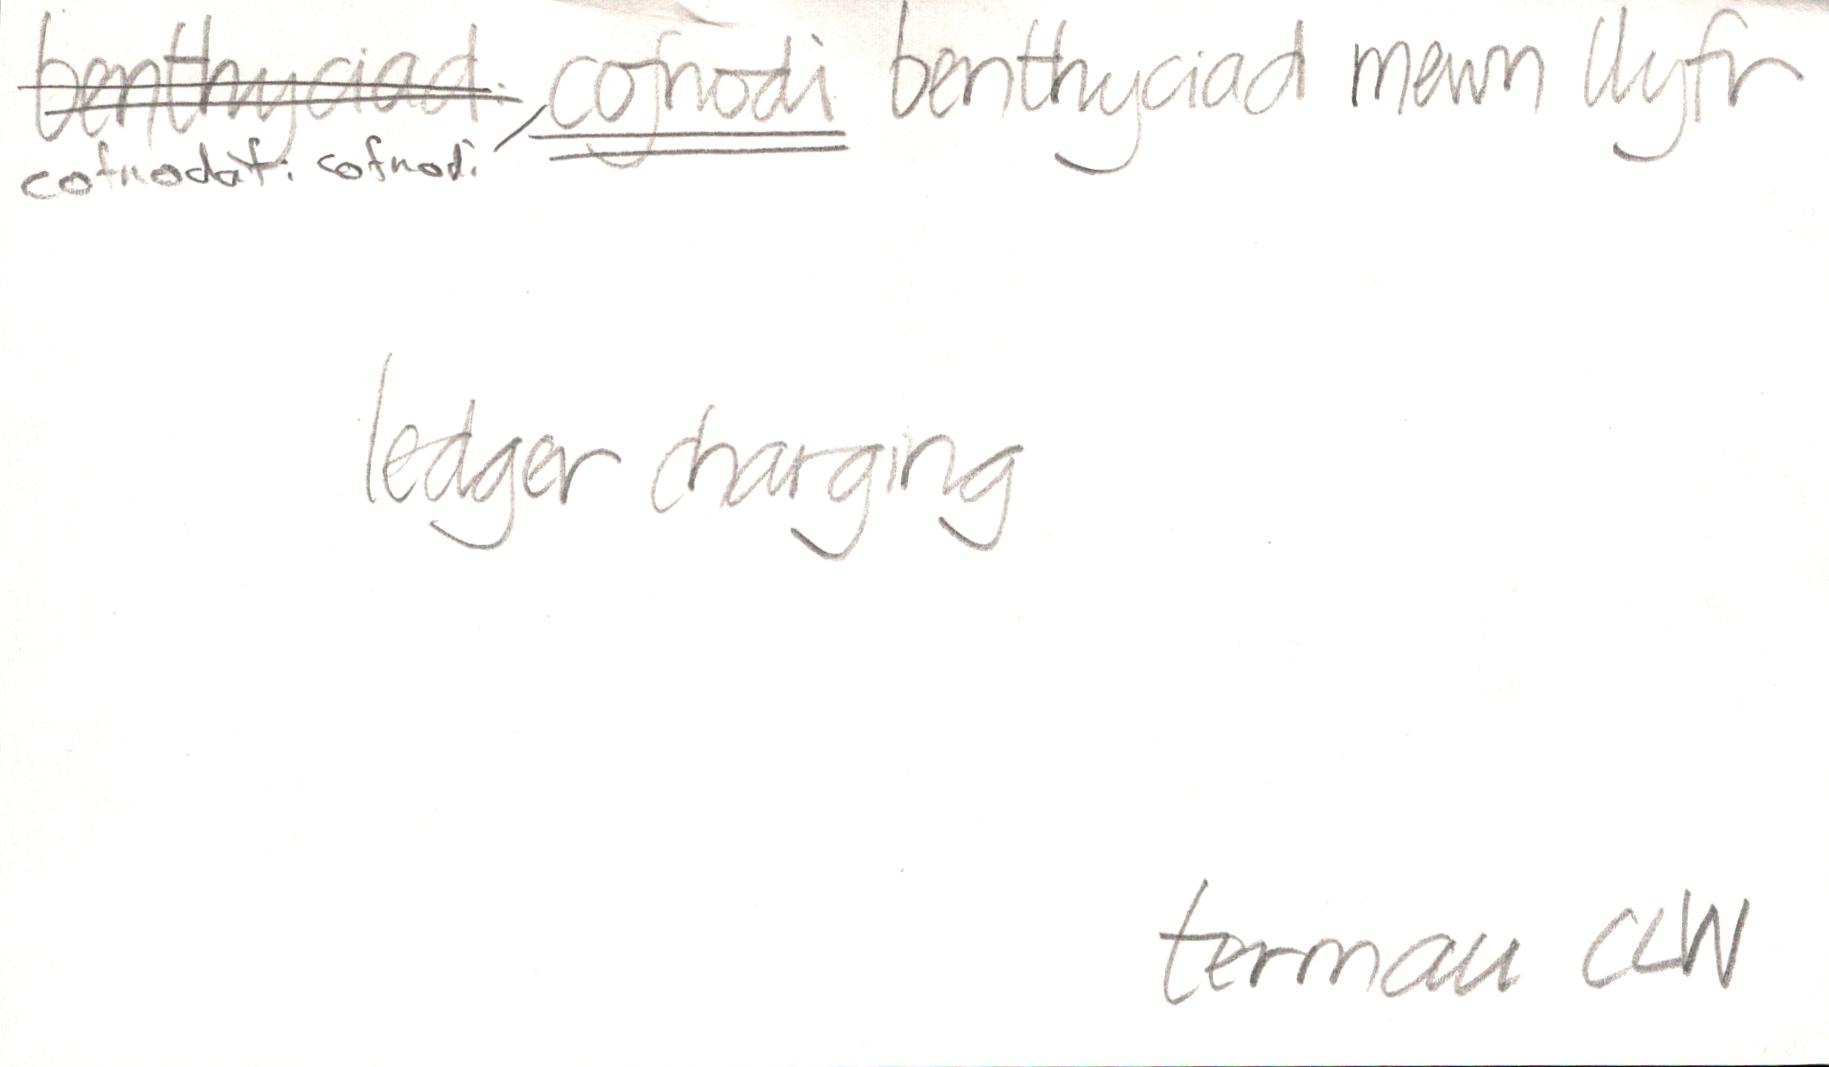 benthyciad: cofnodi benthyciad mewn llyfr
cofnodaf: cofnodi
ledger charging
termau CLW